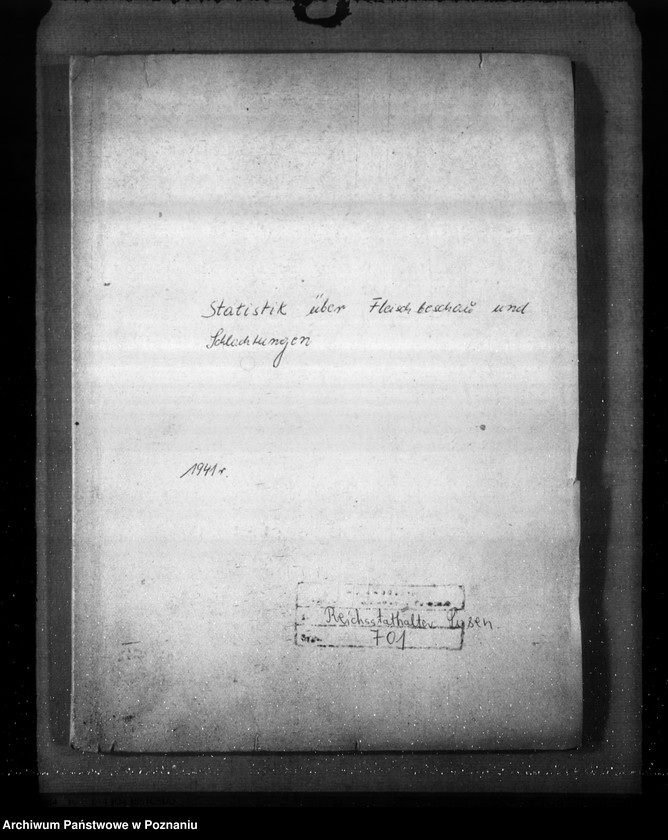 Statistik über Fleischbeschau und
Schlachtungen
1941r.
Reichsstatthalter Posen
701
Archiwum Państwowe w Poznaniu